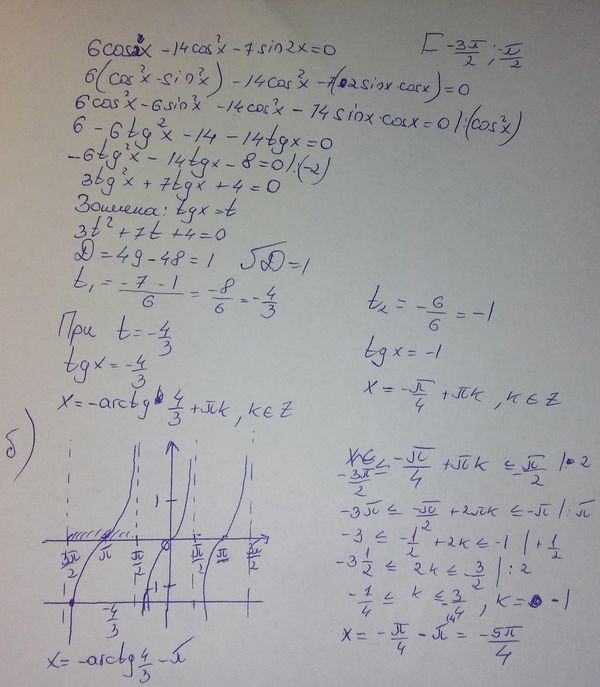 6cos2x - 14cos²x - 7sin2x = 0 [-3π/2; -π/2
6(cos²x - sin²x) - 14cos²x - 7(2sinx·cosx) = 0
6cos²x - 6sin²x - 14cos²x - 14sinx·cosx = 0 |:(cos²x)
6 - 6tg²x - 14 - 14tgx = 0
-6tg²x - 14tgx - 8 = 0 |:(-2)
3tg²x + 7tgx + 4 = 0
Замена: tgx = t
3t² + 7t + 4 = 0
D = 49 - 48 = 1 √D = 1
t₁ = (-7 - 1)/6 = -8/6 = -4/3
При t = -4/3
tgx = -4/3
x = -arctg 4/3 + πk, k ∈ Z
t₂ = -6/6 = -1
tgx = -1
x = -π/4 + πk, k ∈ Z
б)
1
-3π/2 -π -π/2 0 π/2 π 3π/2
-1
-4/3
x = -arctg 4/3 - π
-3π/2 ≤ -π/4 + πk ≤ -π/2 |·2
-3π ≤ -π/2 + 2πk ≤ -π |:π
-3 ≤ -1/2 + 2k ≤ -1 | + 1/2
-3 1/2 ≤ 2k ≤ -3/2 | : 2
-1/4 ≤ k ≤ -3/4, k = -1
x = -π/4 - π = -5π/4